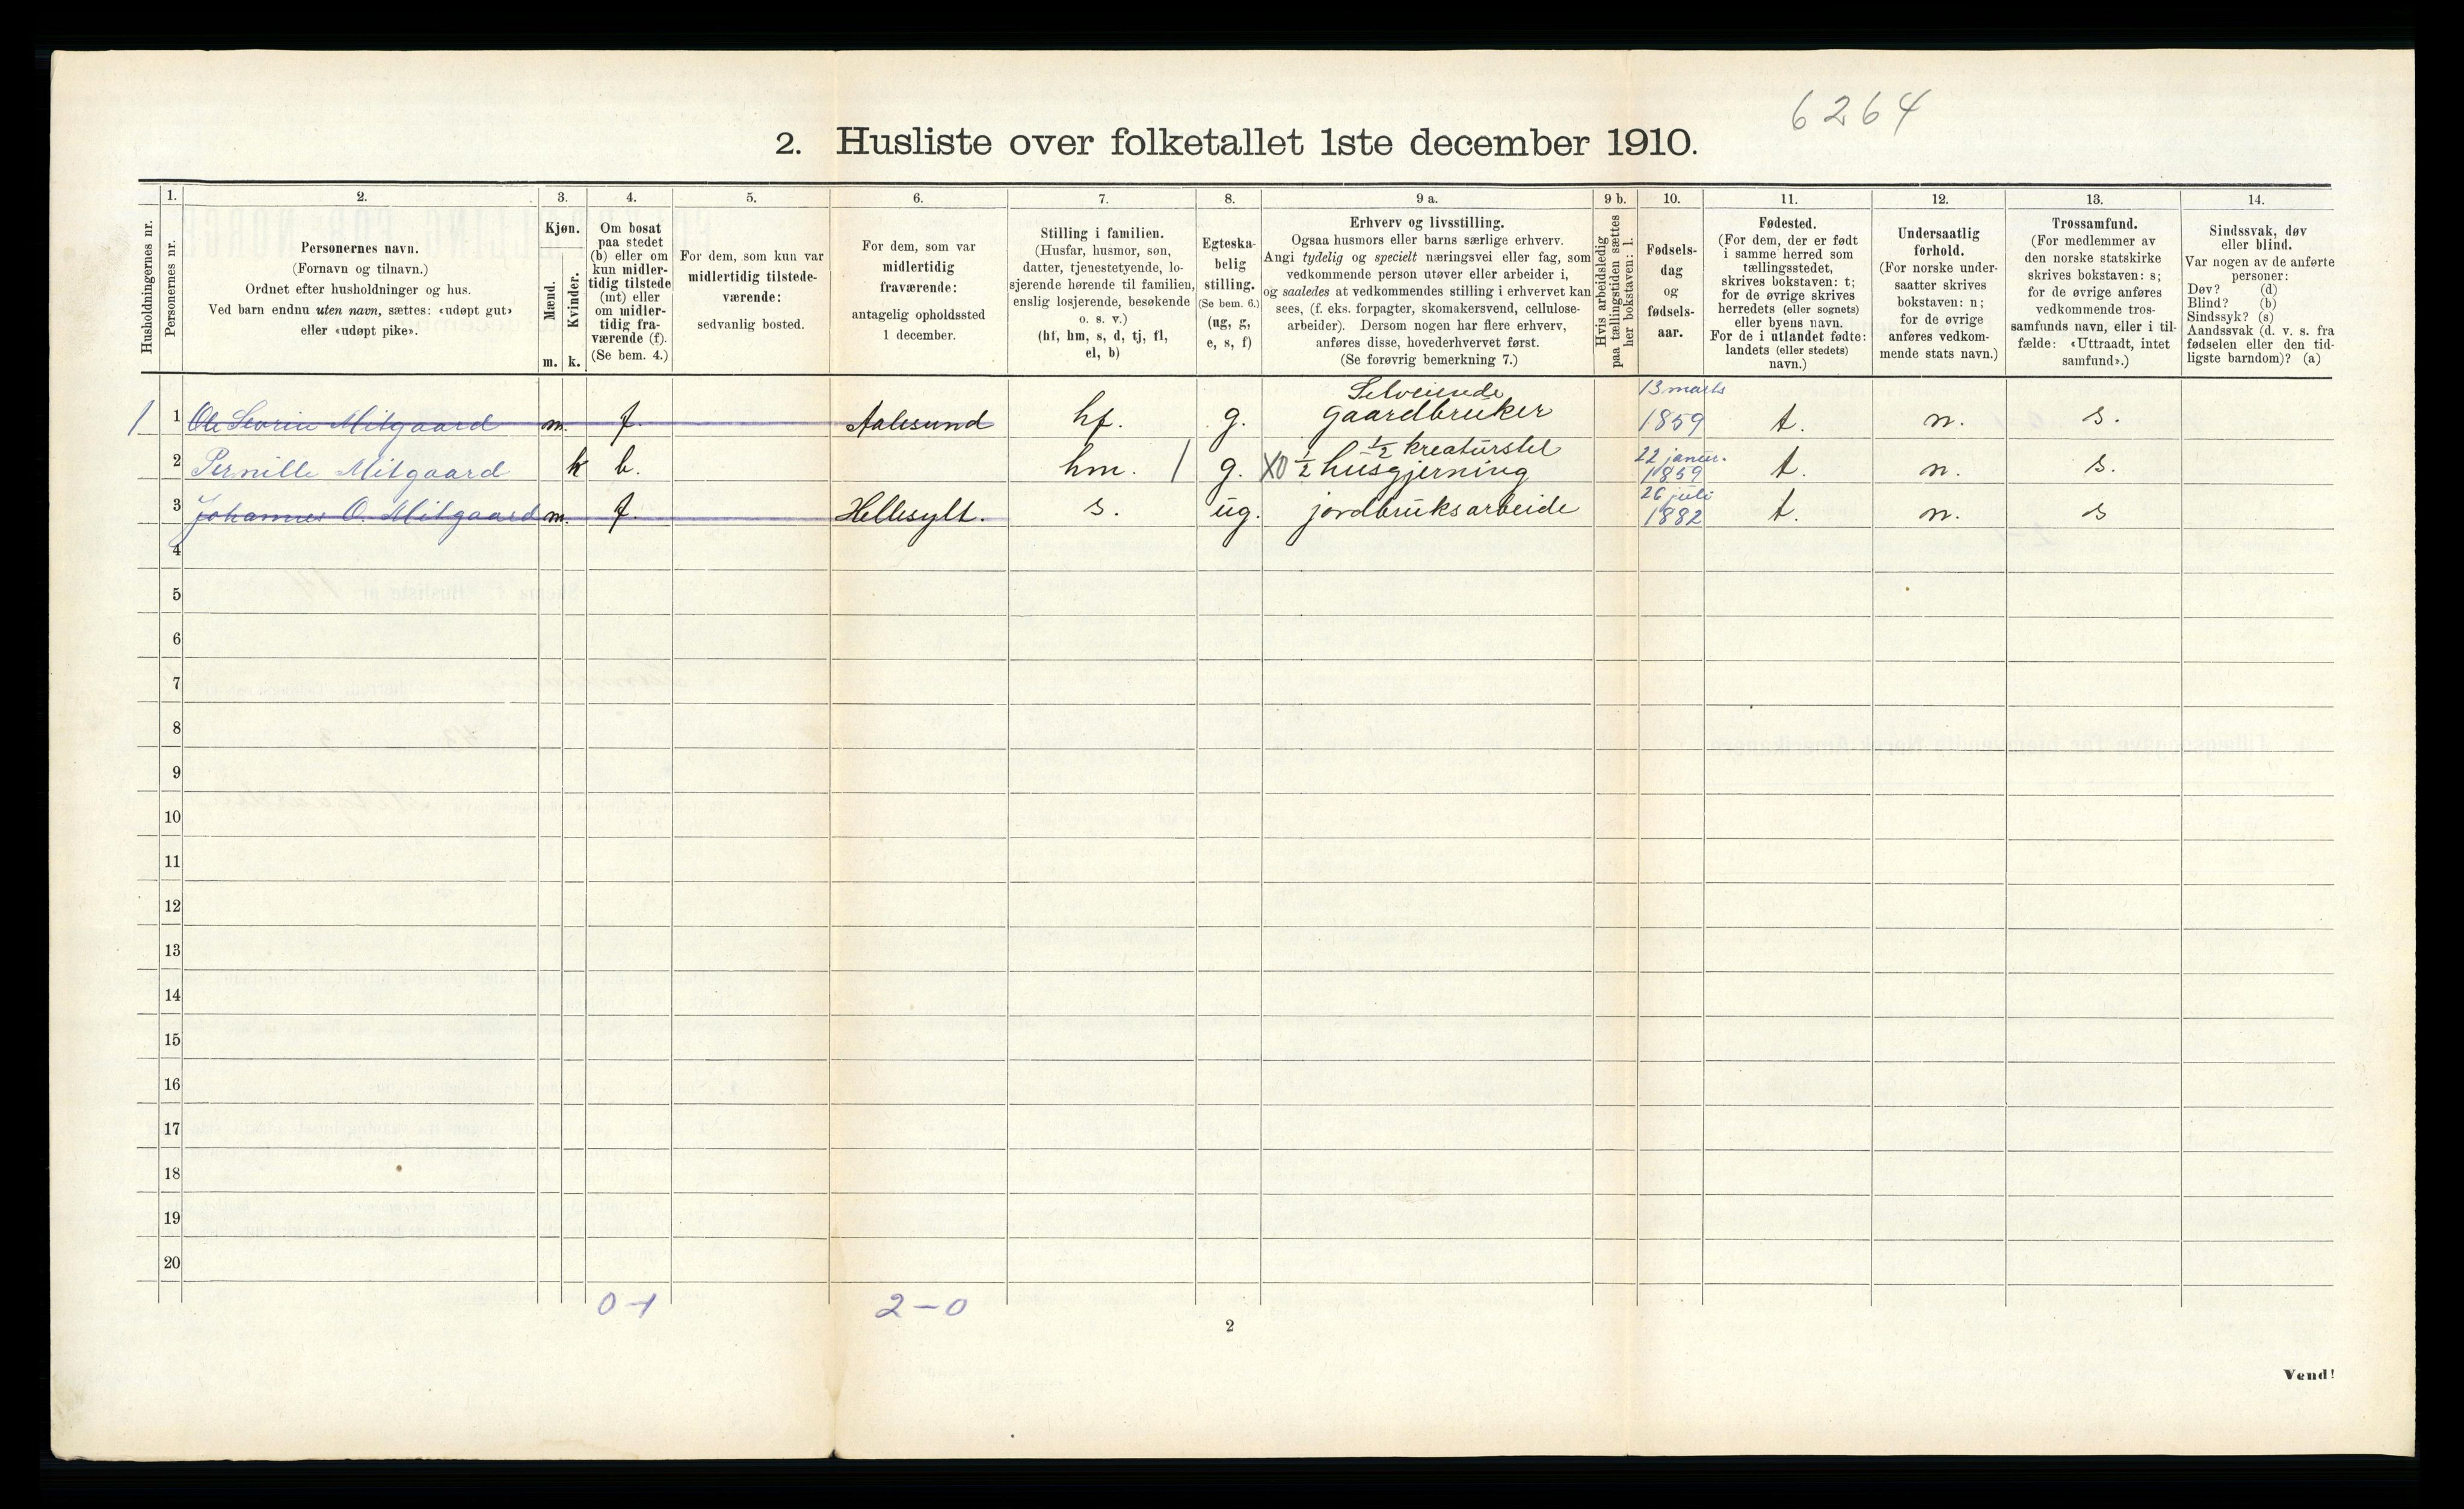 6264
2. Husliste over folketallet 1ste december 1910.
Husholdningernes nr.
1.
Personernes nr.
2.
Personernes navn.
(Fornavn og tilnavn.)
Ordnet efter husholdninger og hus.
Ved barn endnu uten navn, sættes: «udøpt gut»
eller «udøpt pike».
3.
Kjøn.
Mænd.
Kvinder.
m. k.
4.
Om bosat
paa stedet
(b) eller om
kun midler-
tidig tilstede
(mt) eller
om midler-
tidig fra-
værende (f).
(Se bem. 4.)
5.
For dem, som kun var
midlertidig tilstede-
værende:
sedvanlig bosted.
6.
For dem, som var
midlertidig
fraværende:
antagelig opholdssted
1 december.
7.
Stilling i familien.
(Husfar, husmor, søn,
datter, tjenestetyende, lo-
sjerende hørende til familien,
enslig losjerende, besøkende
o. s. v.)
(hf, hm, s, d, tj, fl,
el, b)
8.
Egteska-
belig
stilling.
(Se bem. 6.)
(ug, g,
e, s, f)
9 a.
Erhverv og livsstilling.
Ogsaa husmors eller barns særlige erhverv.
Angi tydelig og specielt næringsvei eller fag, som
vedkommende person utøver eller arbeider i,
og saaledes at vedkommendes stilling i erhvervet kan
sees, (f. eks. forpagter, skomakersvend, cellulose-
arbeider). Dersom nogen har flere erhverv,
anføres disse, hovederhvervet først.
(Se forøvrig bemerkning 7.)
9 b.
Hvis arbeidsledig
paa tællingstiden sættes
her bokstaven: l.
10.
Fødsels-
dag
og
fødsels-
aar.
11.
Fødested.
(For dem, der er født
i samme herred som
tællingsstedet,
skrives bokstaven: t;
for de øvrige skrives
herredets (eller sognets)
eller byens navn.
For de i utlandet fødte:
landets (eller stedets)
navn.)
12.
Undersaatlig
forhold.
(For norske under-
saatter skrives
bokstaven: n;
for de øvrige
anføres vedkom-
mende stats navn.)
13.
Trossamfund.
(For medlemmer av
den norske statskirke
skrives bokstaven: s;
for de øvrige anføres
vedkommende tros-
samfunds navn, eller i til-
fælde: «Uttraadt, intet
samfund».)
14.
Sindssvak, døv
eller blind.
Var nogen av de anførte
personer:
Døv? (d)
Blind? (b)
Sindssyk? (s)
Aandssvak (d. v. s. fra
fødselen eller den tid-
ligste barndom)? (a)
Selveiende 13 marts
1 1 Ole Severin Mitgaard m. f. Aalesund hf. g. gaardbruker 1859 t. n. s.
½ kreaturstel 22 januar.
2 Pernille Mitgaard k b. hm. | g. X0 ½ husgjerning 1859 t. n. s.
26 juli
3 Johannes O. Mitgaard m. f. Hellesylt. s. ug. jordbruksarbeide 1882 t. n. s
4
5
6
7
8
9
10
11
12
13
14
15
16
17
18
19
20
0-1 2-0
2
Vend!